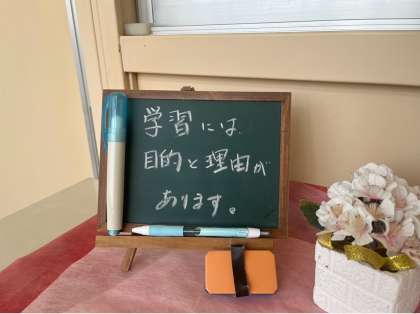 学習には
目的と理由が
あります。